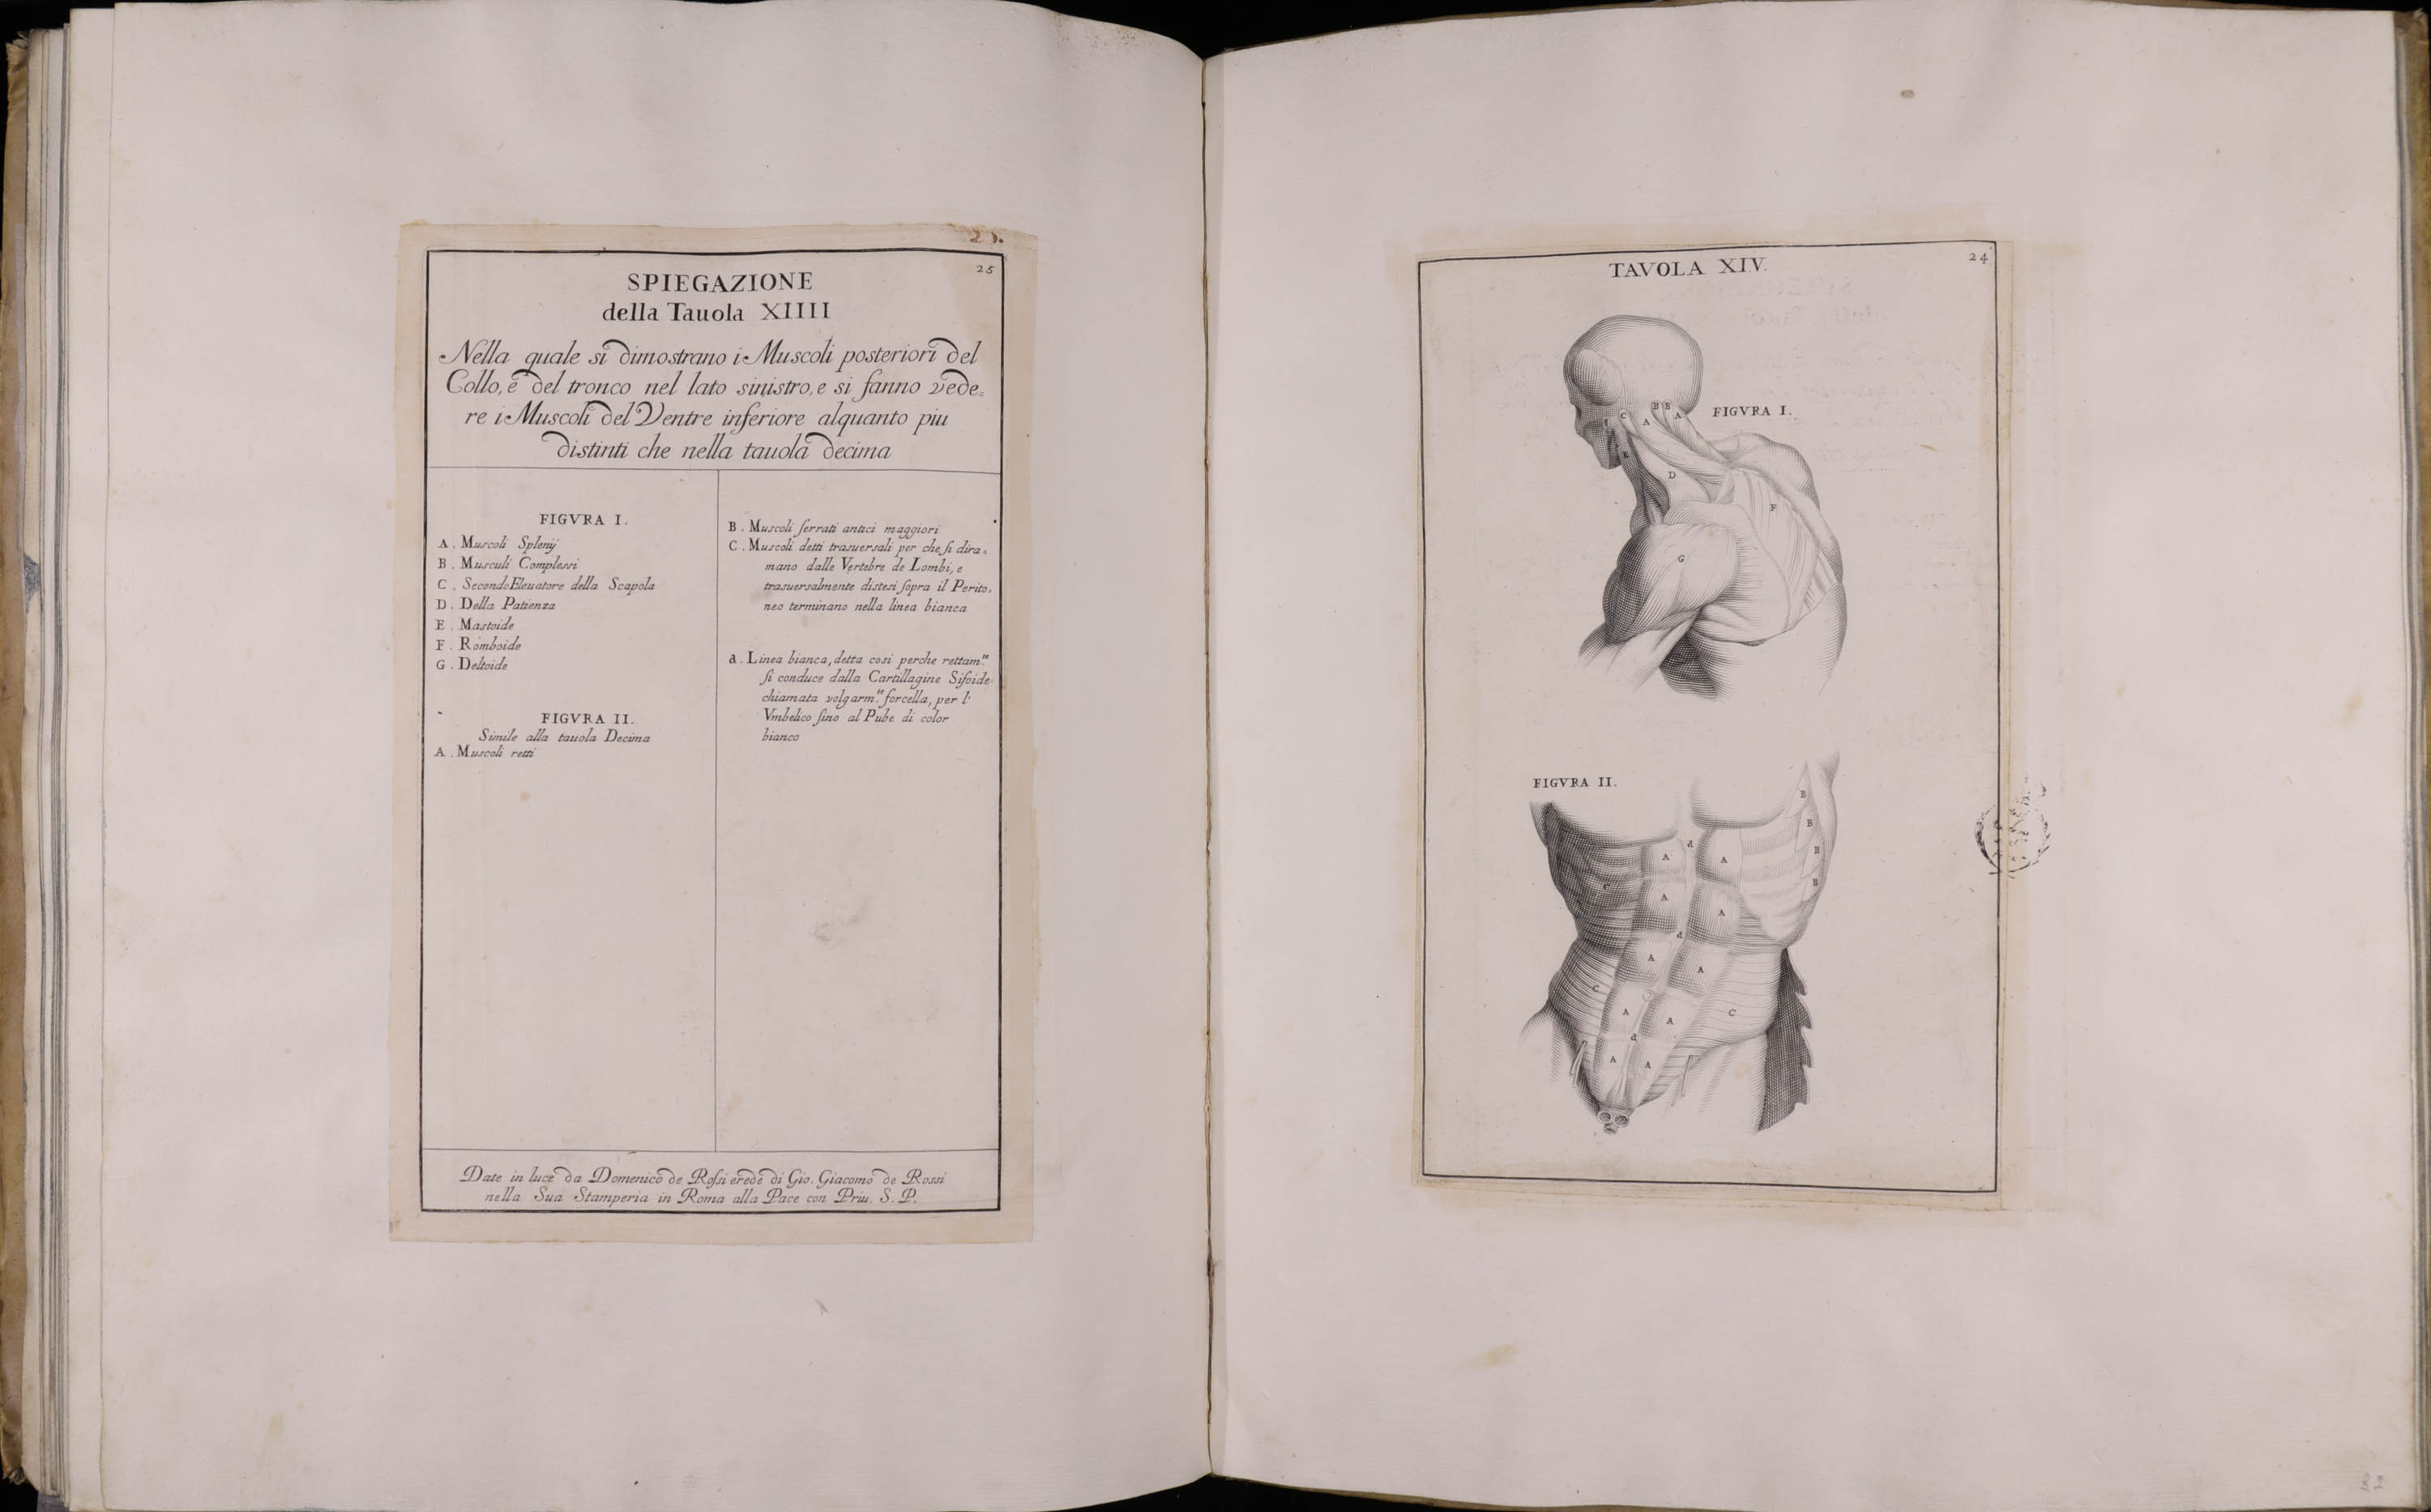 25.
25
SPIEGAZIONE
della Tauola XIIII
Nella quale si dimostrano i Muscoli posteriori del
Collo, e del tronco nel lato sinistro, e si fanno vede=
re i Muscoli del Ventre inferiore alquanto piu
distinti che nella tauola decima
FIGVRA I.
A . Muscoli Splenij
B . Musculi Complessi
C . Secondo Eleuatore della Scapola
D . Della Patienza
E . Mastoide
F . Romboide
G . Deltoide
FIGVRA II.
Simile alla tauola Decima
A . Muscoli retti
B . Muscoli ſerrati antici maggiori
C . Muscoli detti trasuersali per che ſi dira=
mano dalle Vertebre de Lombi, e
trasuersalmente distesi ſopra il Perito=
neo terminano nella linea bianca
a . Linea bianca, detta cosi perche rettam.te
ſi conduce dalla Cartillagine Sifoide
chiamata volgarm.te forcella, per l'
Vmbelico ſino al Pube di color
bianco
Date in luce da Domenico de Roſsi erede di Gio. Giacomo de Rossi
nella Sua Stamperia in Roma alla Pace con Priu. S. P.
TAVOLA XIV.
24
FIGVRA I.
B E
C A A
D
F
G
FIGVRA II.
B
B
d
A A B
C B
A A
d
A A
C
A A C
d
A A